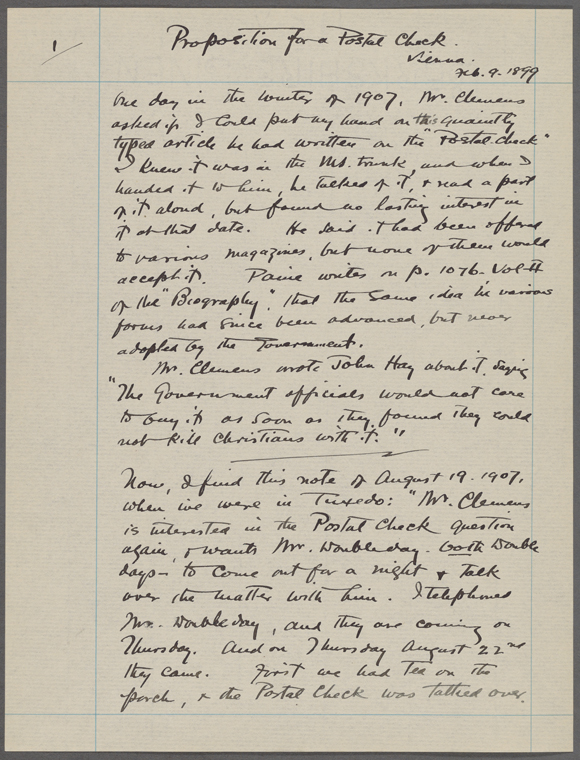 1
Proposition for a Postal Check.
Vienna.
Feb. 9. 1899
One day in the winter of 1907, Mr. Clemens
asked if I could put my hand on this quaintly
typed article he had written on the "Postal Check"
I knew it was in the Ms. trunk, and when I
handed it to him, he talked of it, & read a part
of it aloud, but found no lasting interest in
it at that date. He said it had been offered
to various magazines, but none of them would
accept it. Paine writes on p. 1076 - Vol II
of the "Biography", that the same idea in various
forms had since been advanced, but never
adopted by the Government.
Mr. Clemens wrote John Hay about it, saying
"The Government officials would not care
to buy it as soon as they found they could
not kill Christians with it."
Now, I find this note of August 19. 1907,
when we were in Tuxedo: "Mr. Clemens
is interested in the Postal Check question
again, & wants Mr. Doubleday - both Double
days - to come out for a night & talk
over the matter with him. I telephoned
Mr. Doubleday, and they are coming on
Thursday. And on Thursday August 22nd
they came. First we had tea on the
porch, & the Postal Check was talked over.